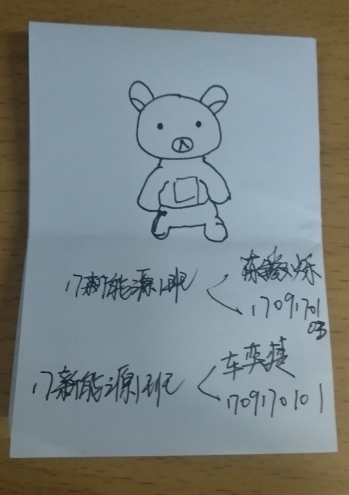 17新能源1班
17091701
03
17新能源1班
车奕捷
1709170101